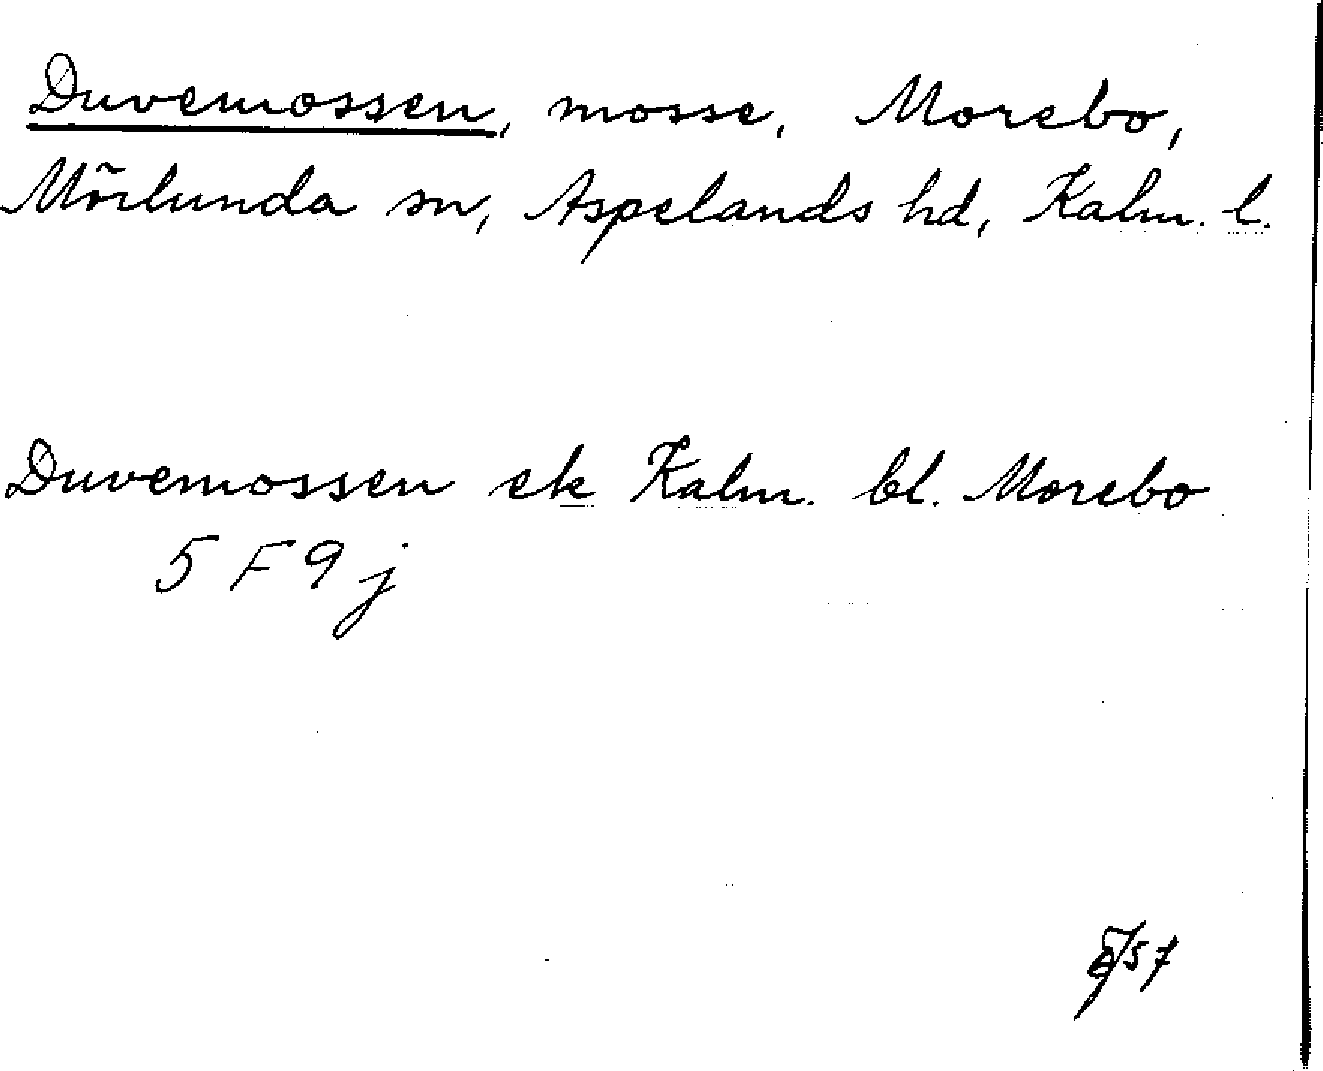 Duvemossen, mosse, Morebo,
Mörlunda sn, Aspelands hd, Kalm. l.
Duvemossen ek Kalm. bl. Morebo
5 F 9 j